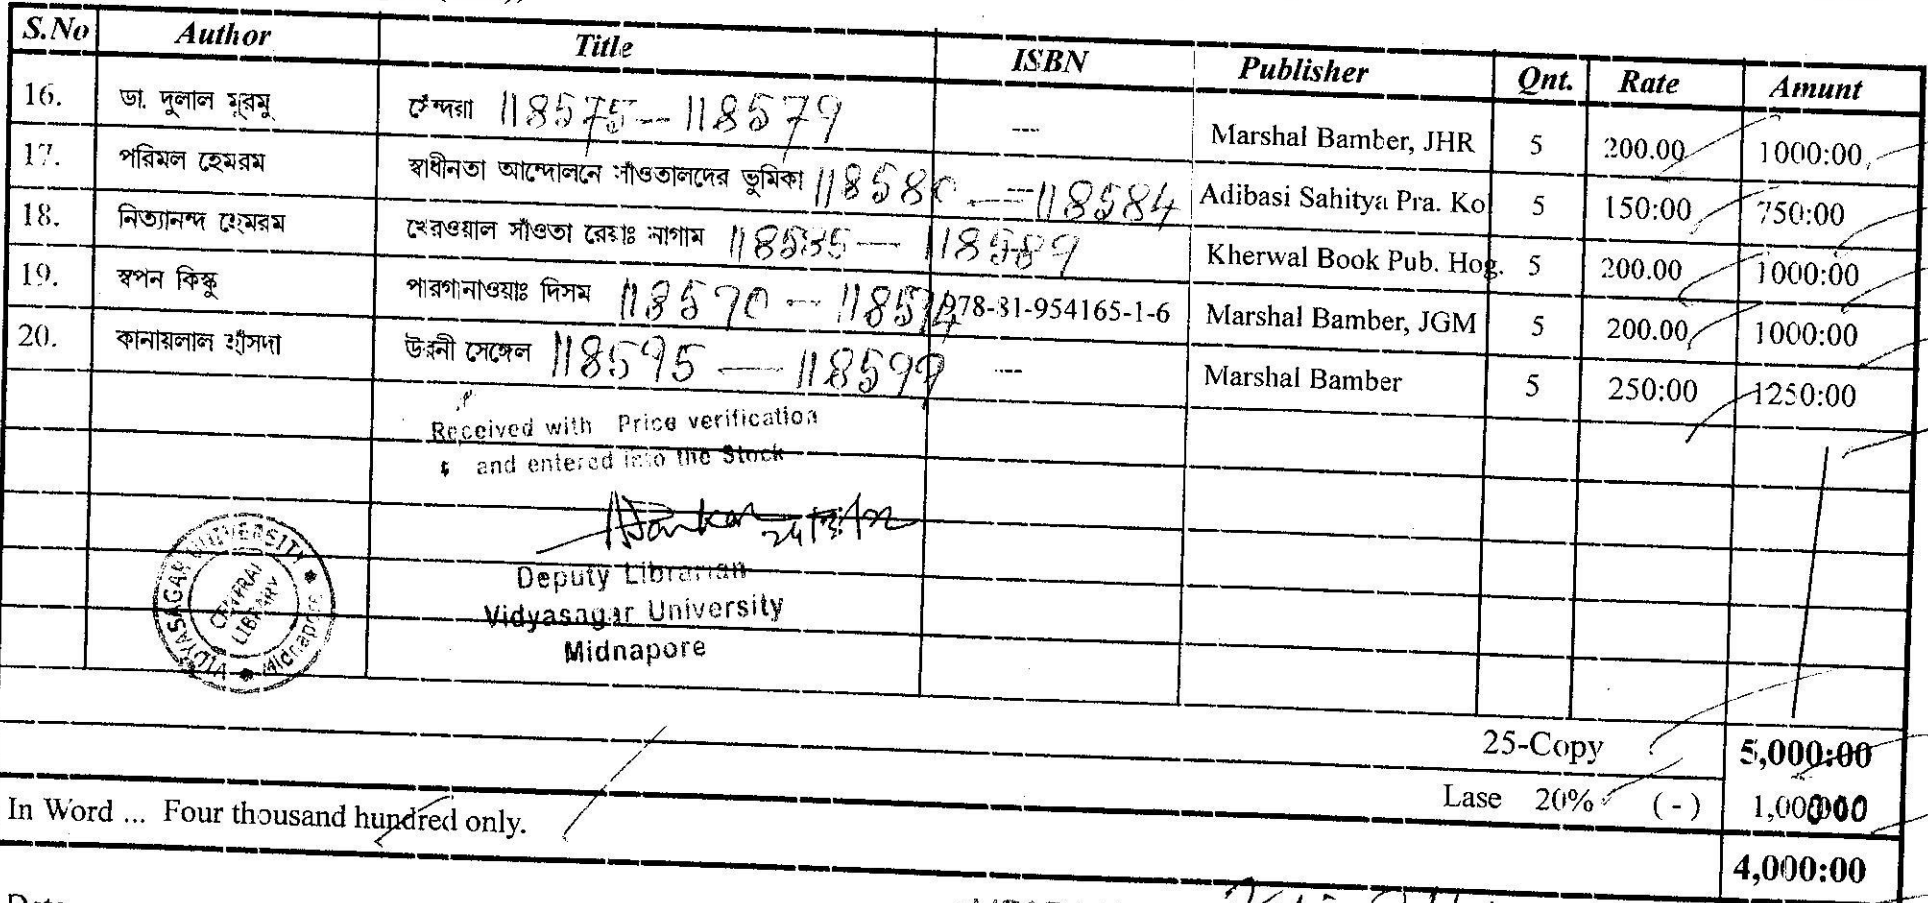 S.No Author Title ISBN Publisher Qnt. Rate Amunt
16. ডা. দুলাল মুরমু সেঁন্দরা 118575 — 118579 --- Marshal Bamber, JHR 5 200.00 1000:00
17. পরিমল হেমরম স্বাধীনতা আন্দোলনে সাঁওতালদের ভূমিকা 118580 — 118584 Adibasi Sahitya Pra. Ko 5 150:00 750:00
18. নিত্যানন্দ হেমরম খেরওয়াল সাঁওতা রেয়াঃ নাগাম 118585 — 118589 Kherwal Book Pub. Hog. 5 200.00 1000:00
19. স্বপন কিস্কু পারগানাওয়াঃ দিসম 118590 — 978-81-954165-1-6 Marshal Bamber, JGM 5 200.00 1000:00
20. কানায়লাল হাঁসদা সেঙ্গেল 118595 — 118599 --- Marshal Bamber 5 250:00 1250:00
Received with Price verification
and entered into the Stock
24/
Deputy Librarian
Vidyasagar University
Midnapore
VIDYASAGAR UNIVERSITY Midnapore
CENTRAL
LIBRARY
25-Copy 5,000:00
Lase 20% (-) 1,00000
In Word ... Four thousand hundred only.
4,000:00